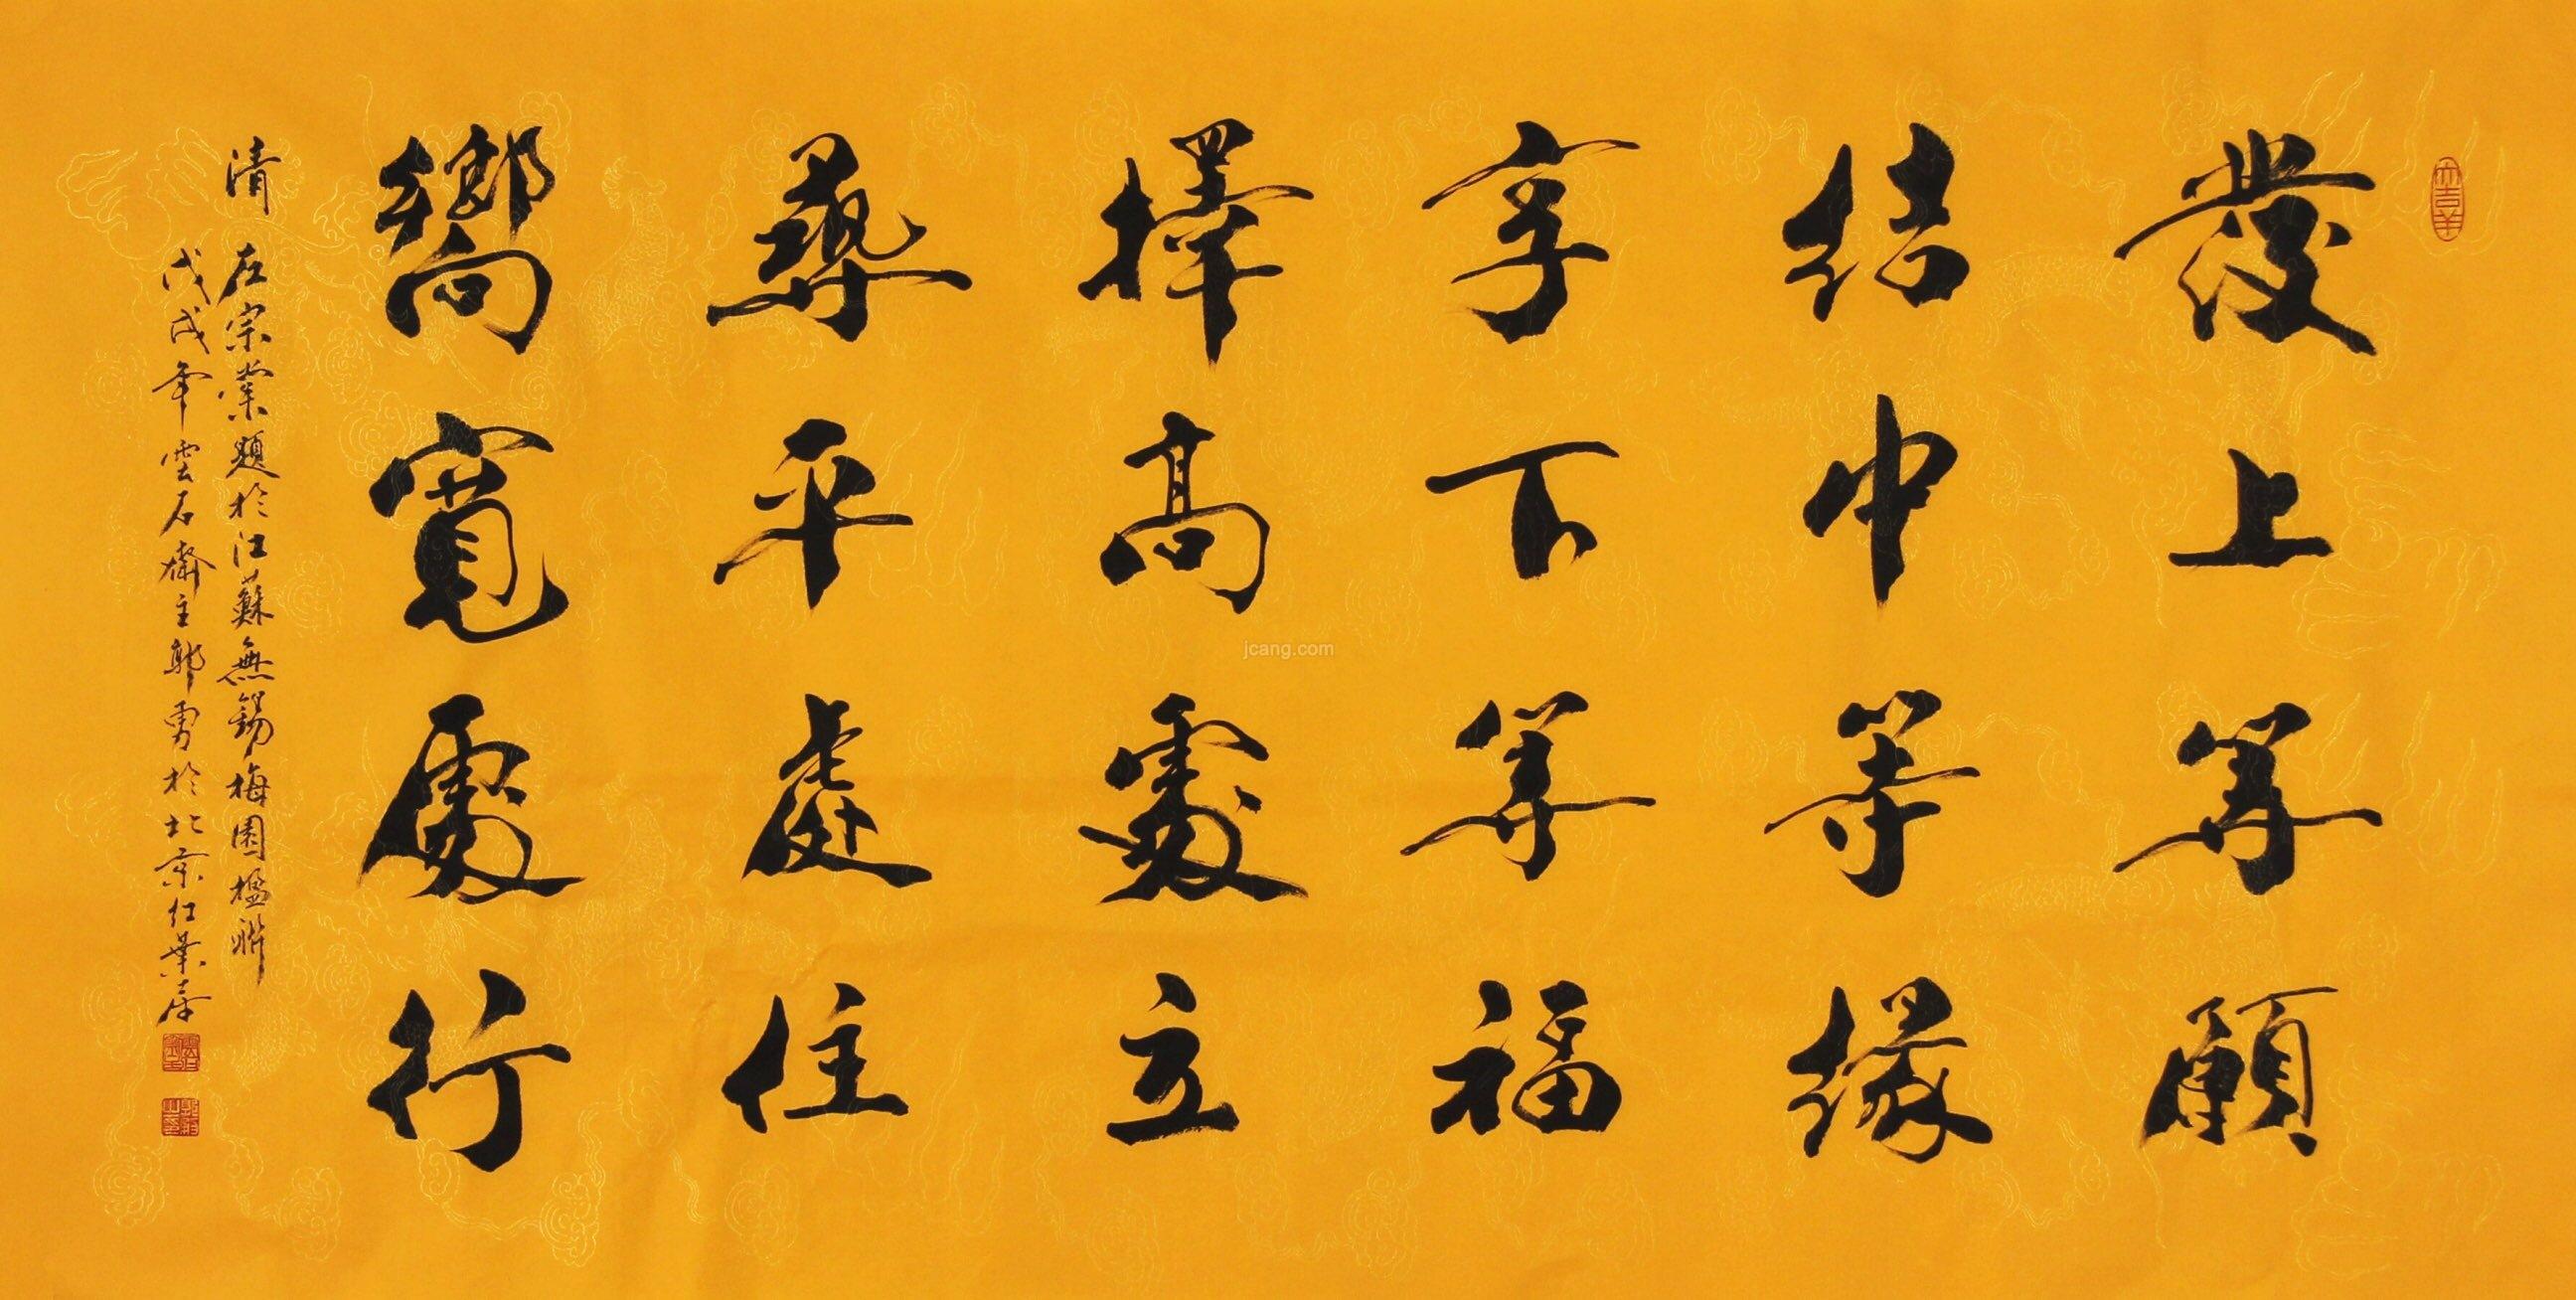 發上等願
結中等緣
享下等福
擇高處立
尋平處住
嚮寬處行
清 左宗棠題於江蘇無錫梅園楹聯
戊戌年雲石齋主郭勇於北京紅葉
大吉羊
jcang.com